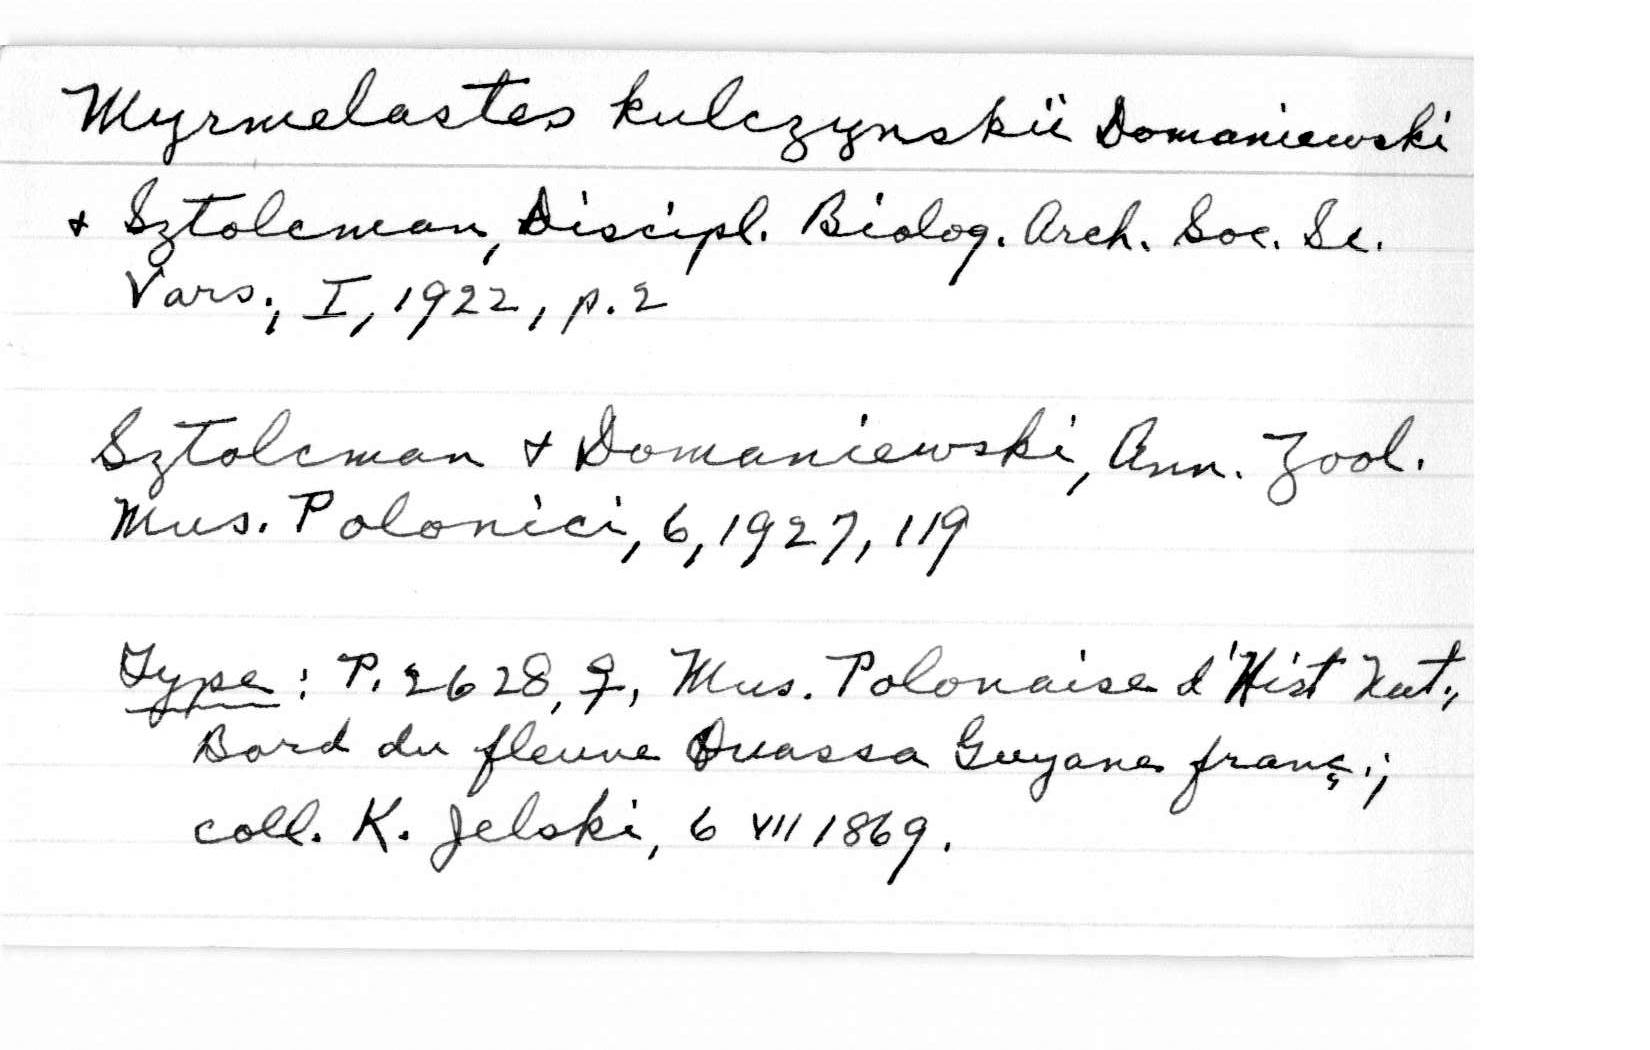 Myrmelastes kulczynskii Domaniewski
& Sztolcman, Discipl. Biolog. Arch. Soc. Sc.
Vars., I, 1922, p. 2
Sztolcman & Domaniewski, Ann. Zool.
Mus. Polonici, 6, 1927, 119
Type: P. 2628, ♀, Mus. Polonaise d'Hist Nat.,
Bord du fleuve Ouassa Guyane franç.;
coll. K. Jelski, 6 VII 1869.